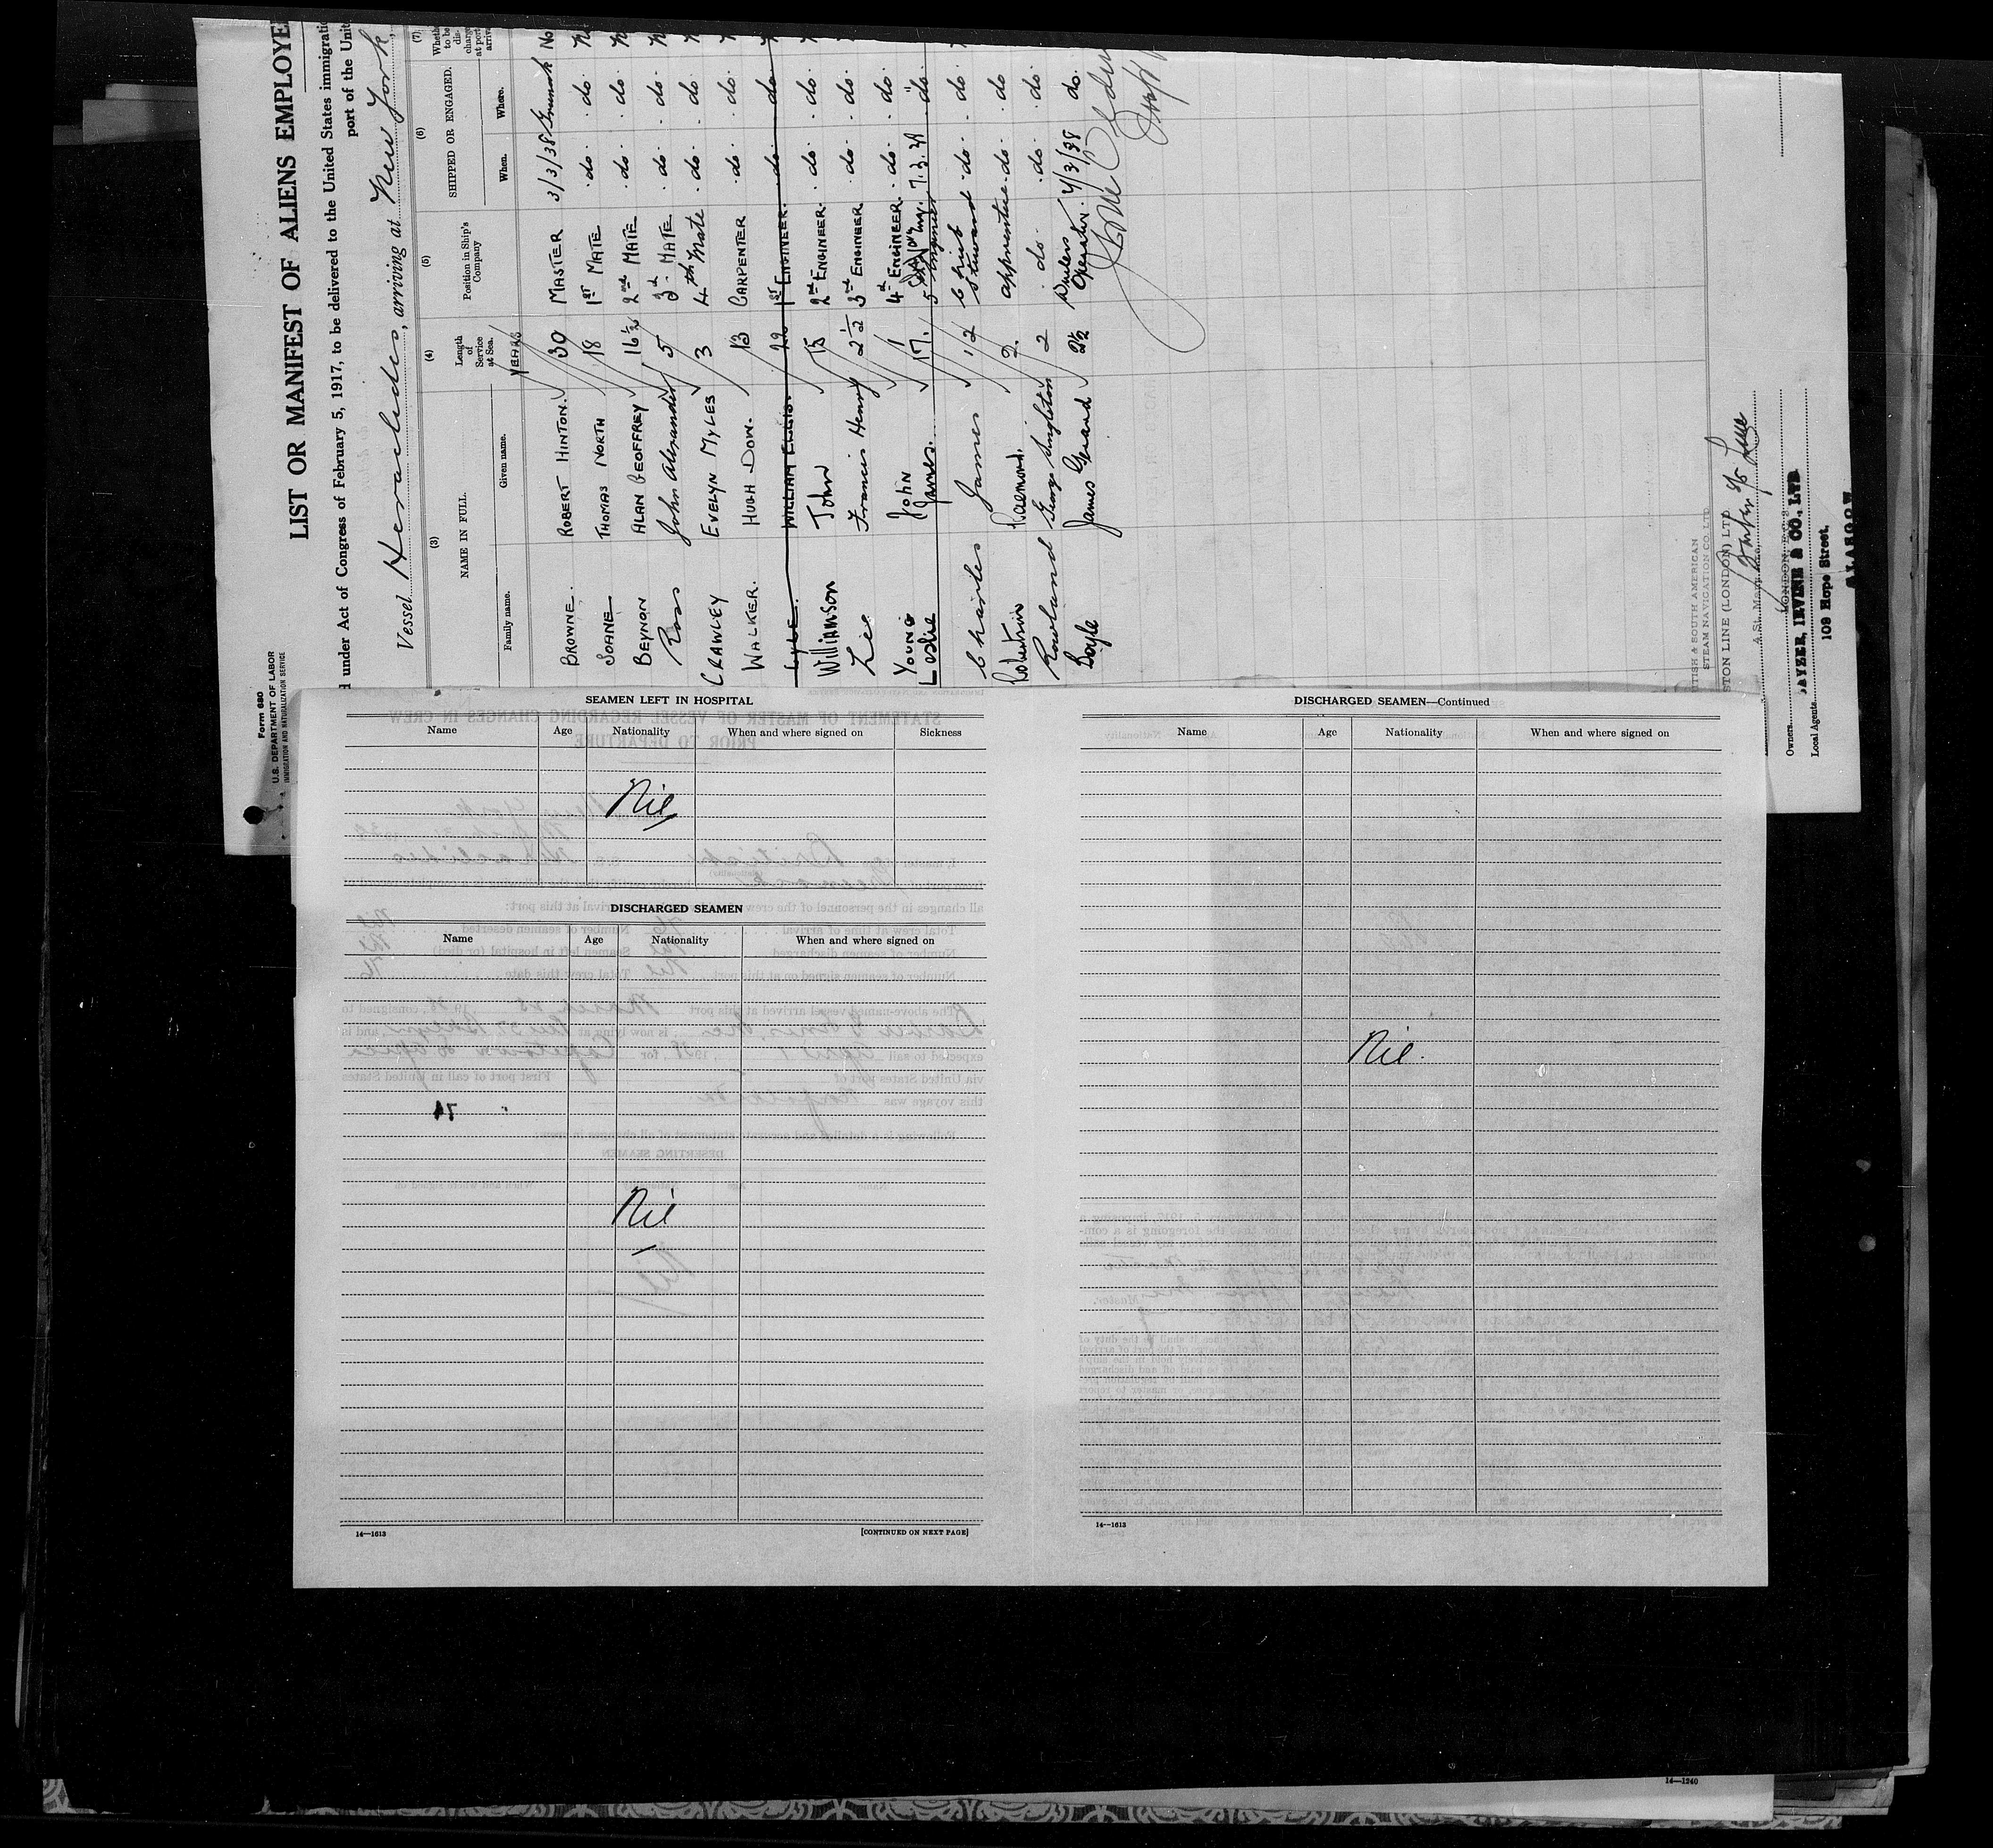 Form 680
U.S. DEPARTMENT OF LABOR
IMMIGRATION AND NATURALIZATION SERVICE
LIST OR MANIFEST OF ALIENS EMPLOYE
under Act of Congress of February 5, 1917, to be delivered to the United States immigratio
port of the Unit
Vessel Heraclides, arriving at New York,
(3) (4) (5) (6) (7)
NAME IN FULL. Length of Service at Sea. Position in Ship's Company SHIPPED OR ENGAGED. Wheth to be dis- charge at port arriva
Family name. Given name. When. Where.
YEARS
BROWNE. ROBERT HINTON. 30 MASTER 3/3/38 Greenock No
SOANE THOMAS NORTH 18 1ST MATE do. do.
BEYNON ALAN GEOFFREY 16½ 2nd MATE do. do.
Ross John Alexander 5 3rd MATE do. do.
CRAWLEY EVELYN MYLES 3 4th Mate do. do.
WALKER. HUGH DOW. 13 CARPENTER do. do.
LYLE. WILLIAM ELLIS. 22 1ST ENGINEER. do. do
Williamson John 15 2nd ENGINEER. do. do.
Lee Francis Henry 2½ 3rd ENGINEER do. do.
YOUNG JOHN 1 4th ENGINEER. do. do.
Leslie James. 17. 5 Engineer 7.3.38 do.
Charles James 12 Chief Steward do. do.
Robertson 2. apprentice do. do
Rowland George Singleton 2 do. do. do.
Boyle James Gerard 2½ Wireless Operator. 4/3/38 do.
TISH & SOUTH AMERICAN
STEAM NAVIGATION CO. LTD
STON LINE (LONDON) LTD
Owners
Local Agents
AYZER, IRVINE & CO., LTD
109 Hope Street,
SEAMEN LEFT IN HOSPITAL
Name Age Nationality When and where signed on Sickness
Nil
DISCHARGED SEAMEN
Name Age Nationality When and where signed on
Nil
14—1613
[CONTINUED ON NEXT PAGE]
DISCHARGED SEAMEN—Continued
Name Age Nationality When and where signed on
Nil.
14—1613
14—1240